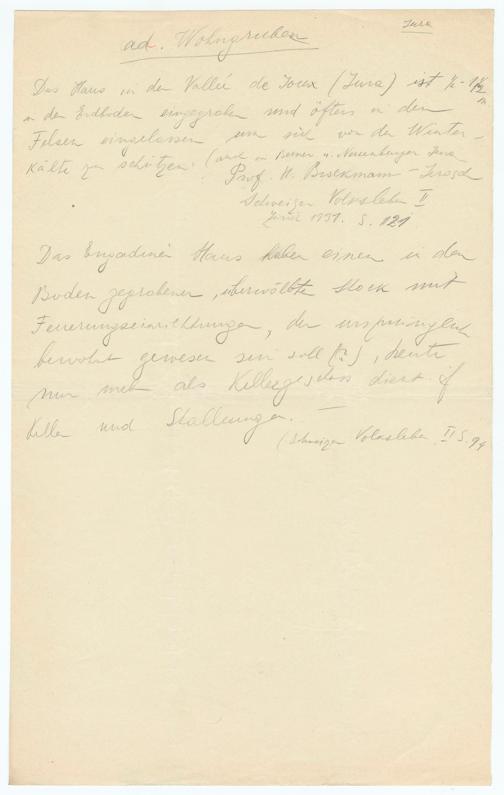 Jura
ad. Wohngruben
Das Haus in der Vallée de Joux (Jura) ist ½ - 1½ m
in den Erdboden eingegraben und öfters in den
Felsen eingelassen um sich vor der Winter-
Kälte zu schützen. (auch in Berner u. Neuenburger Jura
Prof. H. Brockmann - Jerosch
Schweizer Volksleben II
Zürich 1931. S. 121
Das Engadiner Haus haben einen in den
Boden gegrabenen, überwölbten Stock mit
Feuerungseinrichtungen, der ursprünglich
bewohnt gewesen sein soll [?], heute
nur mehr als Kellergeschoss dient f
Keller und Stallungen. —
(Schweizer Volksleben II S. 94